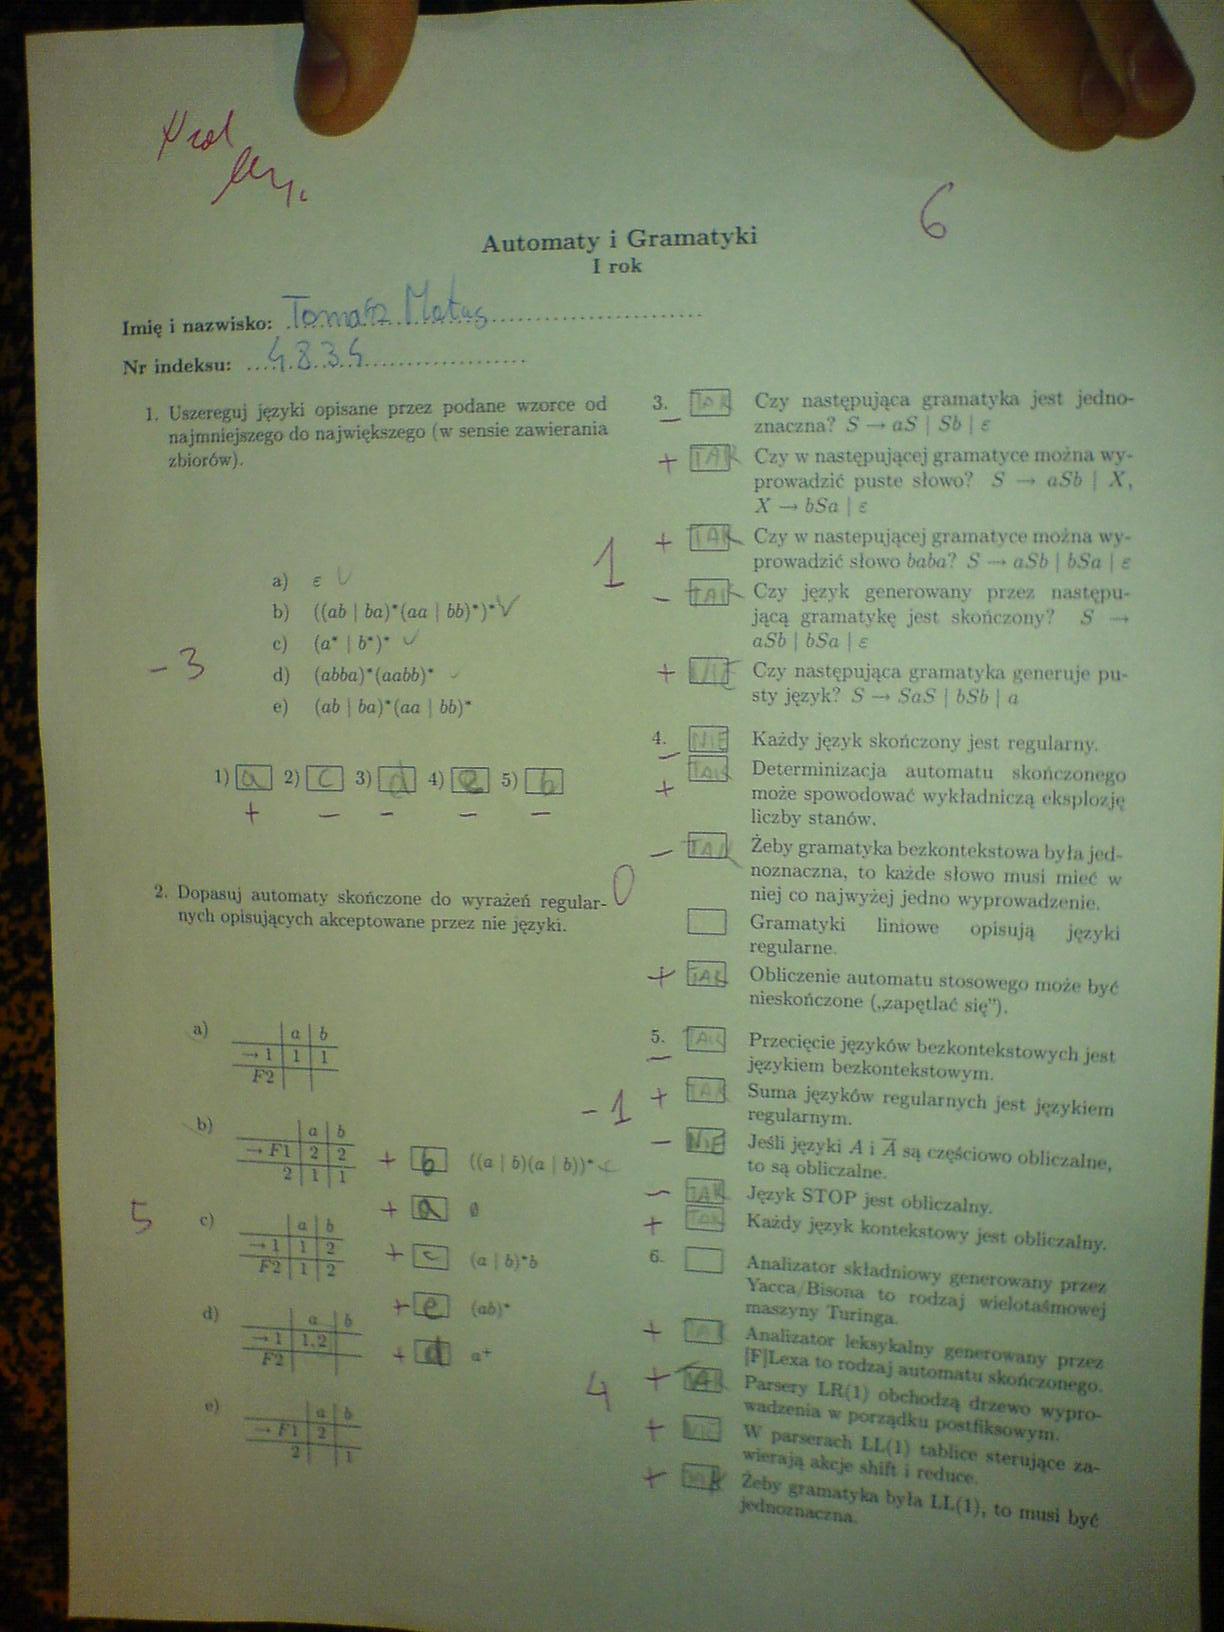 6
Automaty i Gramatyki
I rok
Imię i nazwisko: Tomasz
Nr indeksu: 4834
1. Uszereguj języki opisane przez podane wzorce od
najmniejszego do największego (w sensie zawierania
zbiorów).
a) ε
b) ((ab | ba)*(aa | bb)*)*
c) (a* | b*)*
d) (abba)*(aabb)*
e) (ab | ba)*(aa | bb)*
-3
1) a 2) c 3) d 4) e 5) b
+ - - - -
2. Dopasuj automaty skończone do wyrażeń regular-
nych opisujących akceptowane przez nie języki.
a) a b
→1 1 1
F2
b) a b
→F1 2 2
2 1 1
c) a b
→1 1 2
F2 1 2
d) a b
→1 1,2
F2
e) a b
→F1 2
2 1
5
+ b ((a | b)(a | b))*
+ a ∅
+ c (a | b)*b
+ e (ab)*
+ d a+
1
3. TAK Czy następująca gramatyka jest jedno-
- znaczna? S → aS | Sb | ε
+ TAK Czy w następującej gramatyce można wy-
prowadzić puste słowo? S → aSb | X,
X → bSa | ε
+ TAK Czy w nastepującej gramatyce można wy-
prowadzić słowo baba? S → aSb | bSa | ε
- TAK Czy język generowany przez następu-
jącą gramatykę jest skończony? S →
aSb | bSa | ε
+ NIE Czy następująca gramatyka generuje pu-
sty język? S → SaS | bSb | a
0
4. NIE Każdy język skończony jest regularny.
-
+ TAK Determinizacja automatu skończonego
może spowodować wykładniczą eksplozję
liczby stanów.
- TAK Żeby gramatyka bezkontekstowa była jed-
noznaczna, to każde słowo musi mieć w
niej co najwyżej jedno wyprowadzenie.
Gramatyki liniowe opisują języki
regularne.
+ TAK Obliczenie automatu stosowego może być
nieskończone („zapętlać się”).
-1
5. TAK Przecięcie języków bezkontekstowych jest
- językiem bezkontekstowym.
+ TAK Suma języków regularnych jest językiem
regularnym.
- NIE Jeśli języki A i A̅ są częściowo obliczalne,
to są obliczalne.
- TAK Język STOP jest obliczalny.
+ TAK Każdy język kontekstowy jest obliczalny.
4
6. Analizator składniowy generowany przez
Yacca/Bisona to rodzaj wielotaśmowej
maszyny Turinga.
+ TAK Analizator leksykalny generowany przez
[F]Lexa to rodzaj automatu skończonego.
+ TAK Parsery LR(1) obchodzą drzewo wypro-
wadzenia w porządku postfiksowym.
+ NIE W parserach LL(1) tablice sterujące za-
wierają akcje shift i reduce.
+ TAK Żeby gramatyka była LL(1), to musi być
jednoznaczna.